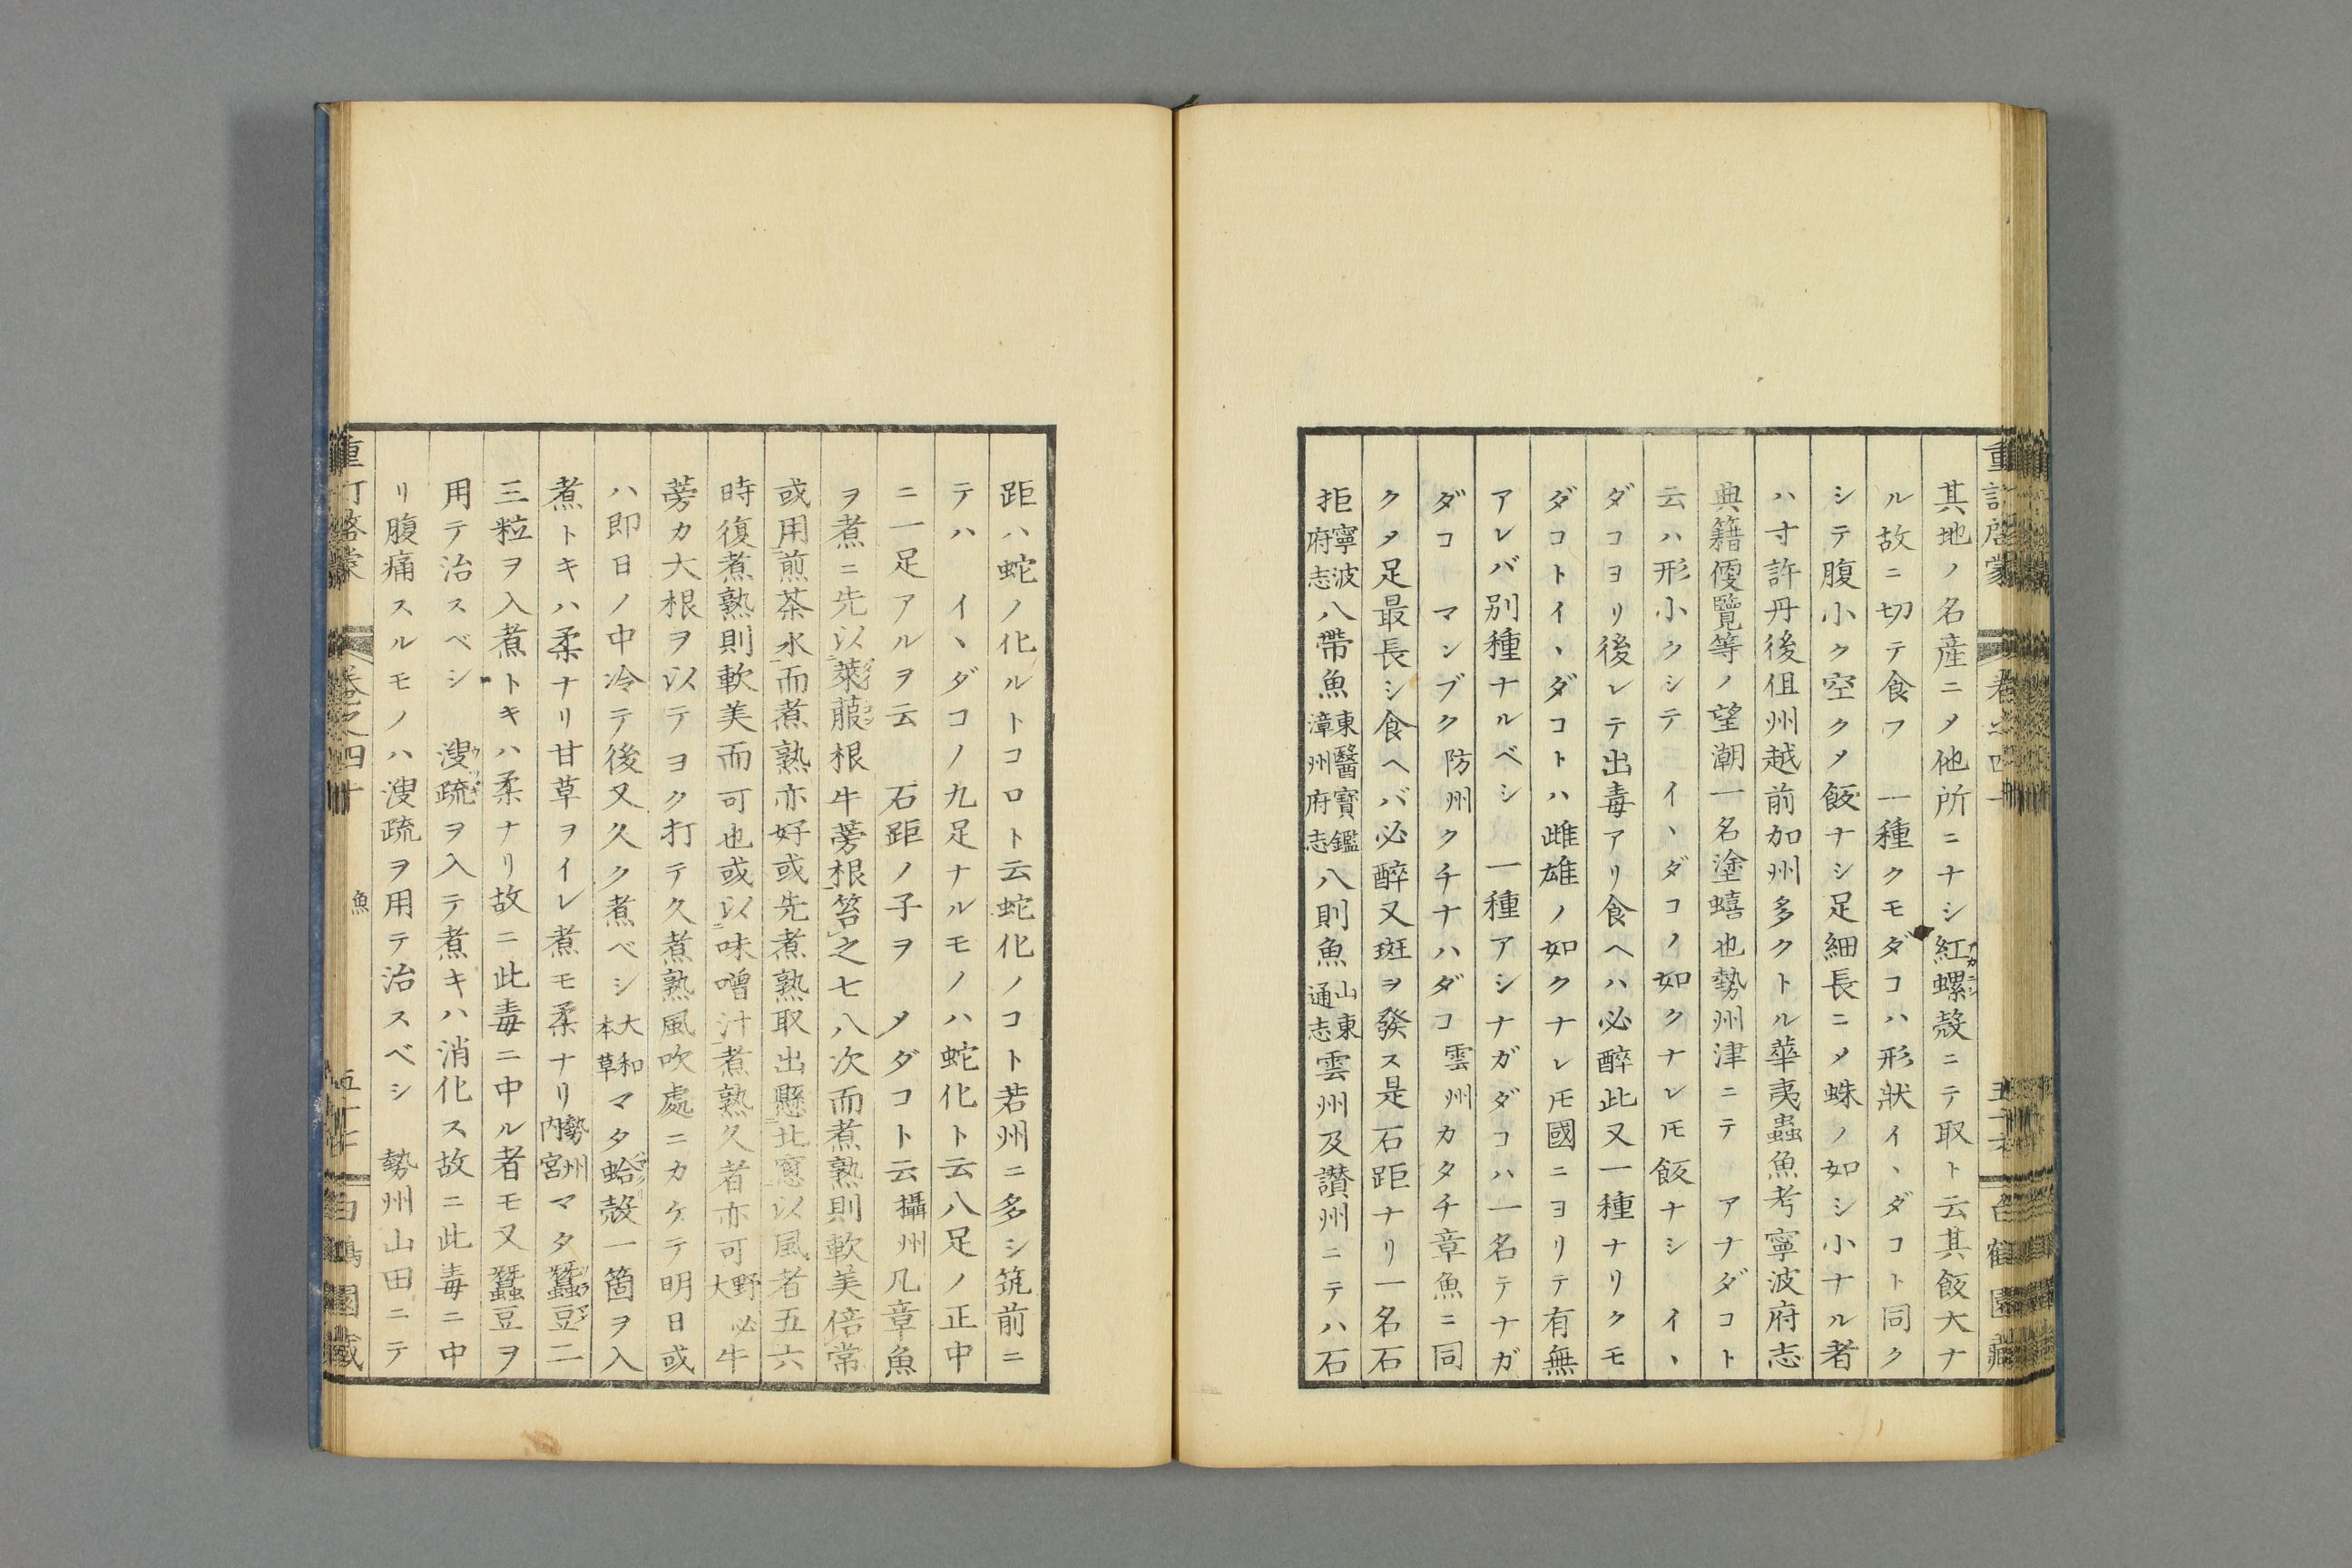 其地ノ名産ニメ他所ニナシ紅螺殻ニテ取ト云其飯大ナ
ル故ニ切テ食フ 一種クモダコハ形狀イヽダコト同ク
シテ腹小ク空クメ飯ナシ足細長ニメ蛛ノ如シ小ナル者
ハ寸許丹後伹州越前加州多クトル華夷蟲魚考寧波府志
典籍便覽等ノ望潮一名塗蟢也勢州津ニテ アナダコト
云ハ形小クシテ イヽダコノ如クナレ𪜈飯ナシ イヽ
ダコヨリ後レテ出毒アリ食ヘハ必醉此又一種ナリクモ
ダコトイヽダコトハ雌雄ノ如クナレ𪜈國ニヨリテ有無
アレバ別種ナルベシ 一種アシナガダコハ一名テナガ
ダコ マンブク防州クチナハダコ雲州カタチ章魚ニ同
クメ足最長シ食ヘバ必醉又斑ヲ發ス是石距ナリ一名石
拒寧波府志八帶魚東醫寶鑑漳州府志八則魚山東通志雲州及讃州ニテハ石
距ハ蛇ノ化ルトコロト云蛇化ノコト若州ニ多シ筑前ニ
テハ イヽダコノ九足ナルモノハ蛇化ト云八足ノ正中
ニ一足アルヲ云 石距ノ子ヲ メダコト云攝州凡章魚
ヲ煮ニ先以萊菔根牛蒡根笞之七八次而煮熟則軟美倍常
或用煎茶水而煮熟亦好或先煮熟取出懸北窓以風者五六
時復煮熟則軟美而可也或以味噌汁煮熟久者亦可野必大牛
蒡カ大根ヲ以テヨク打テ久煮熟風吹處ニカケテ明日或
ハ即日ノ中冷テ後又久ク煮ベシ大和本草マタ蛤殻一箇ヲ入
煮トキハ柔ナリ甘草ヲイレ煮モ柔ナリ勢州内宮マタ蠶豆二
三粒ヲ入煮トキハ柔ナリ故ニ此毒ニ中ル者モ又蠶豆ヲ
用テ治スベシ 溲疏ヲ入テ煮キハ消化ス故ニ此毒ニ中
リ腹痛スルモノハ溲疏ヲ用テ治スベシ 勢州山田ニテ
魚